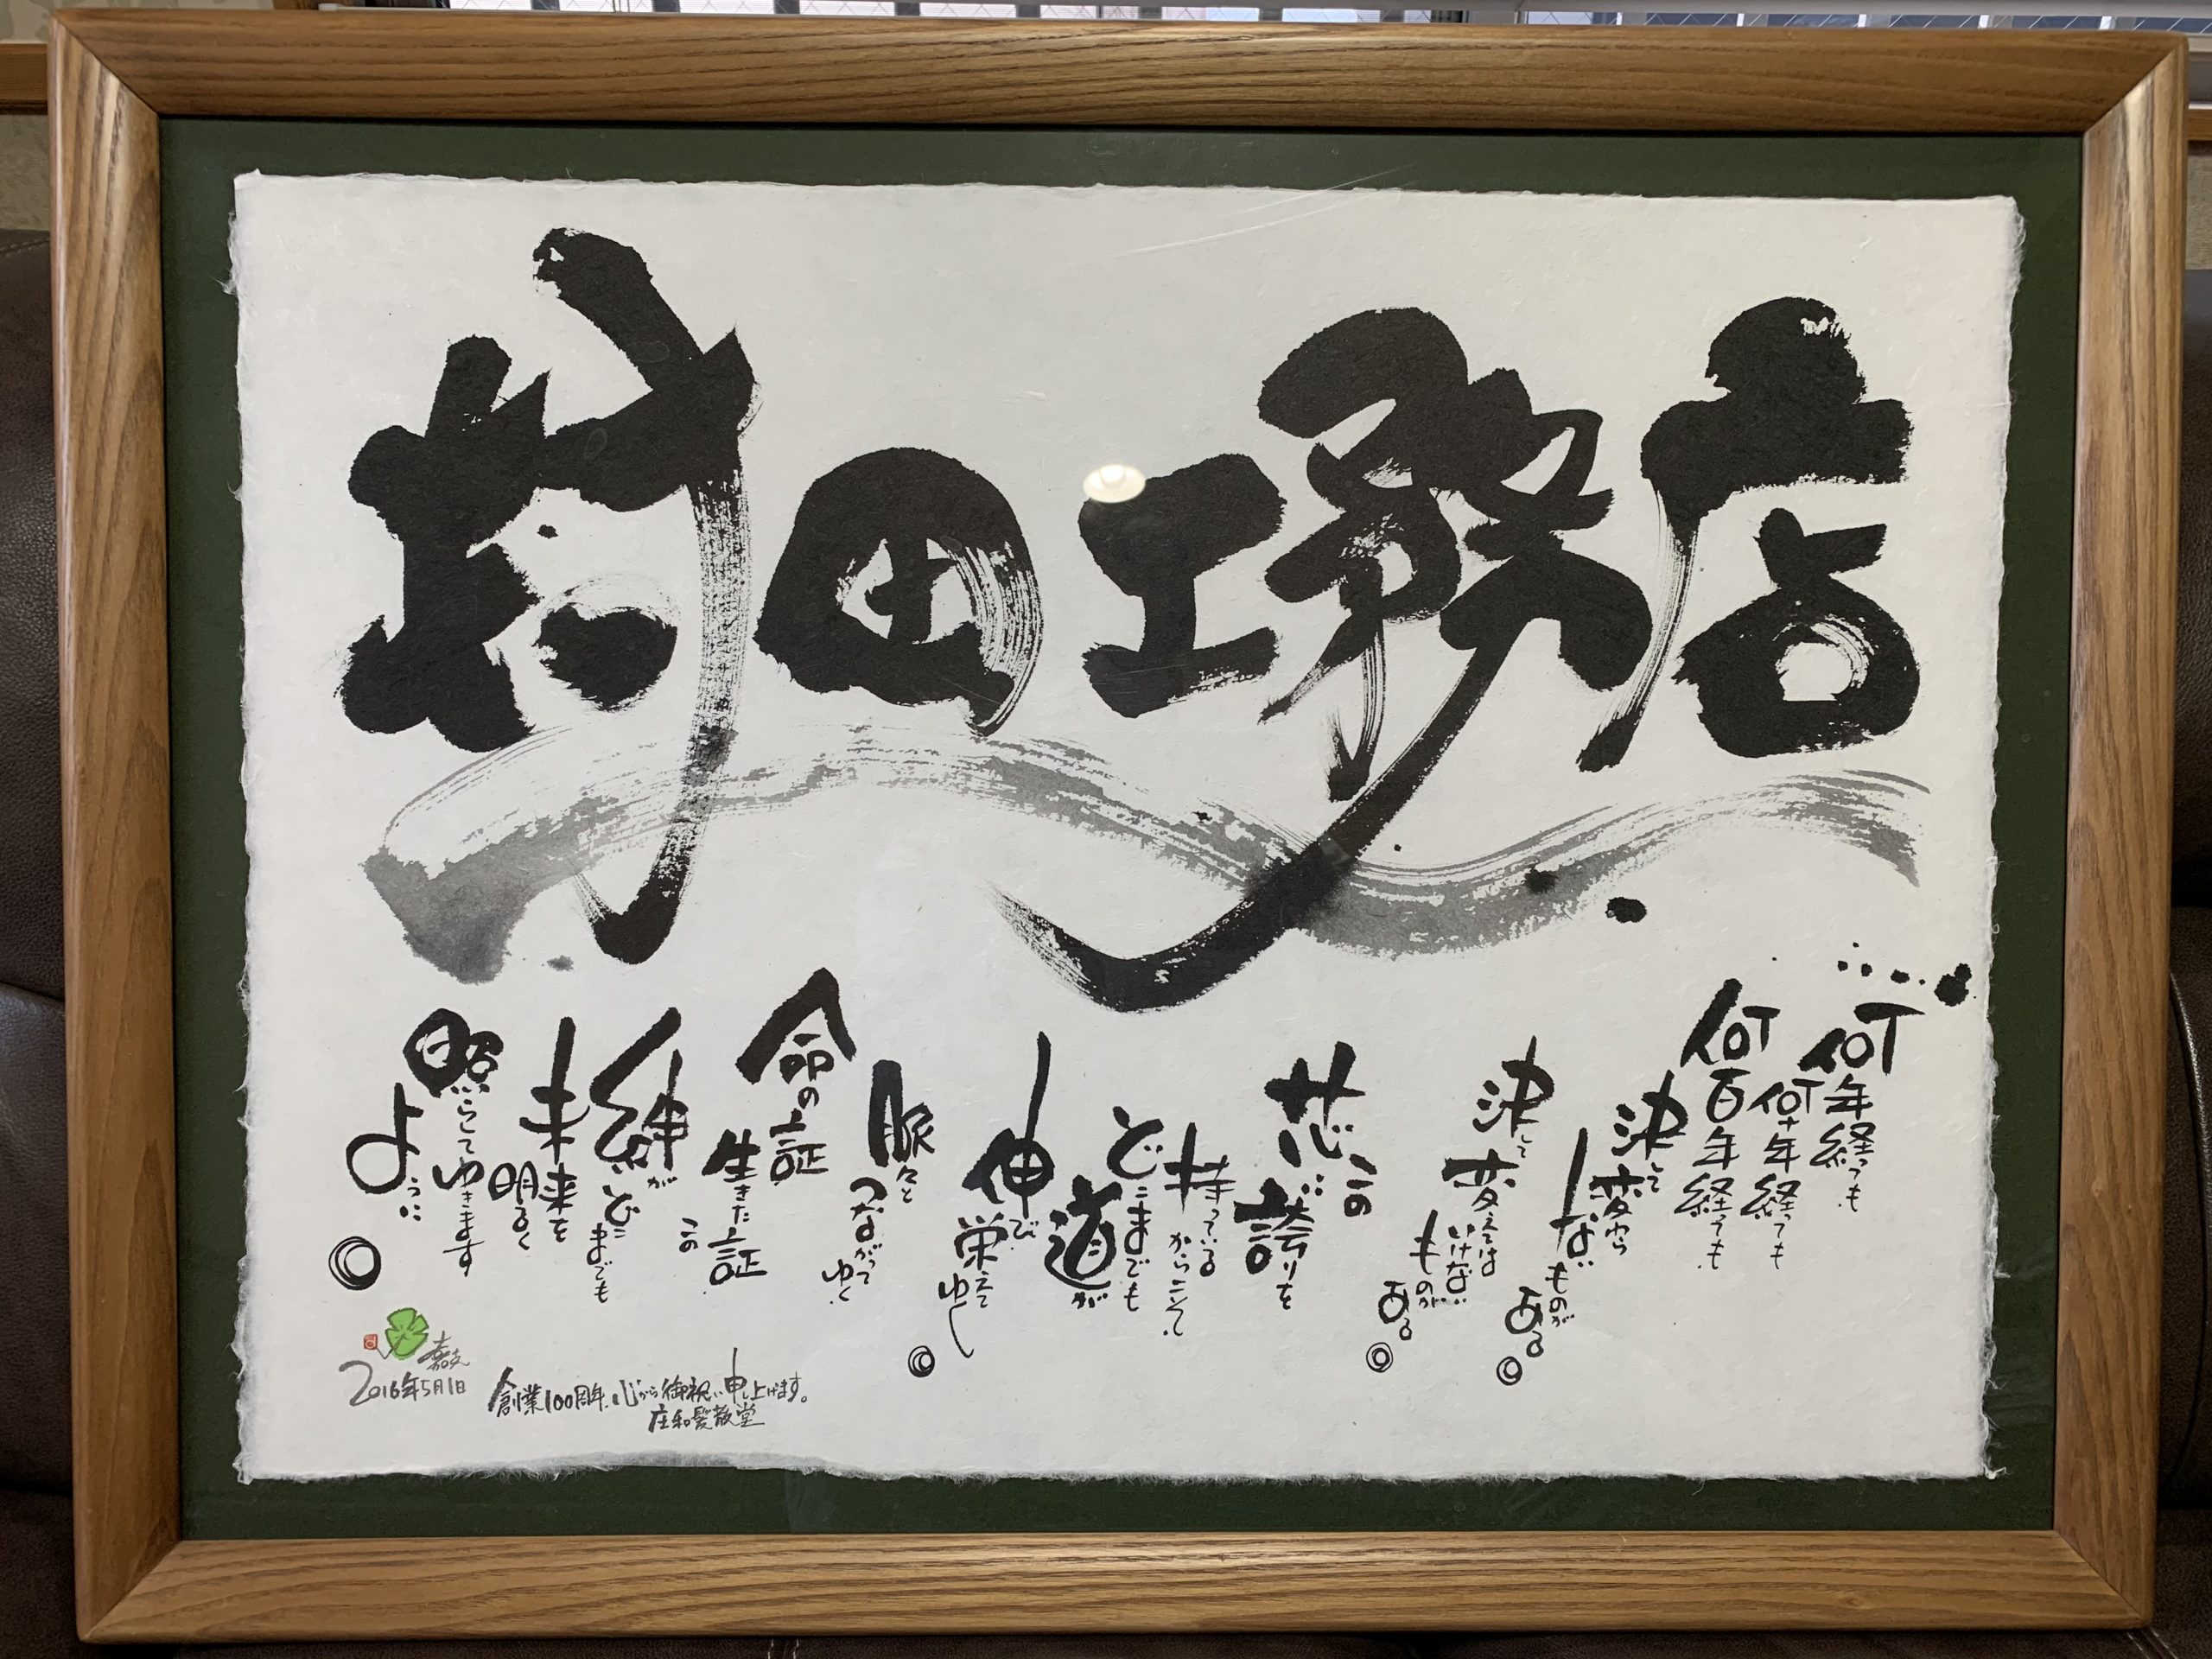 村田工務店
何年経っても
何十年経っても
何百年経っても
決して変わら
ないものがある
決して変えては
いけない
ものがある
芯にこの
誇りを
持っているからこそ
どこまでも
道が
伸び
栄えてゆく
脈々と
つながってゆく
命の証
生きた証
この
絆が
どこまでも
未来を
明るく
照らしてゆきます
ように
2016年5月1日
創業100周年、心から御祝い申し上げます。